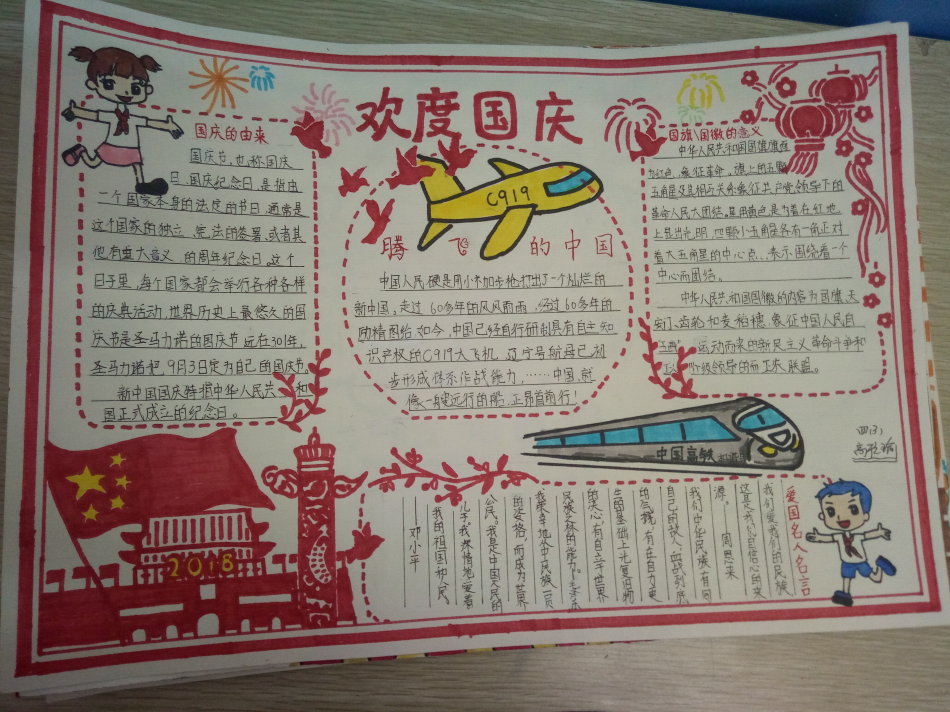 欢度国庆
国庆的由来
国庆节,也称国庆
日、国庆纪念日,是指由
一个国家本身的法度的节日,通常是
这个国家的独立、宪法的签署,或者其
他有重大意义的周年纪念日。这个
日子里,每个国家都会举行各种各样
的庆典活动,世界历史上最悠久的国
庆节是圣马力诺的国庆节,远在301年,
圣马力诺把,9月3日定为自己的国庆节。
新中国国庆特指中华人民共和
国正式成立的纪念日。
C919
腾飞的中国
中国人民硬是用小米加步枪打出了一个灿烂的
新中国,走过60多年的风风雨雨,经过60多年的
励精图治,如今,中国已经自行研制具有自主知
识产权的C919大飞机,辽宁号航母已初
步形成体系作战能力,……中国,就
像一艘远行的船,正昂首前行!
国旗国徽的意义
中华人民共和国国旗旗面
为红色,象征革命,旗上的五颗
五角星及其相互关系象征共产党领导下的
革命人民大团结。星用黄色是为着在红地
上显出光明,四颗小五角星各有一角正对
着大五角星的中心点,表示围绕着一个
中心而团结。
中华人民共和国国徽的内容为国旗、天
安门、齿轮和麦稻穗,象征中国人民自
"五四"运动而来的新民主义革命斗争和
工人阶级领导的而工农联盟。
中国高铁 和谐号
四(3)
2018
爱国名人名言
我们爱我们的民族
这是我们自信心的来
源。 周恩来
我们中华民族有同
自己的敌人血战到底
的气概,有在自力更
生的基础上光复旧物
的决心,有自立于世界
民族之林的能力。毛泽东
我荣幸地从中民族一员
的资格,而成为世界
公民。我是中国人民的
儿子。我深情地爱着
我的祖国和人民。
邓小平